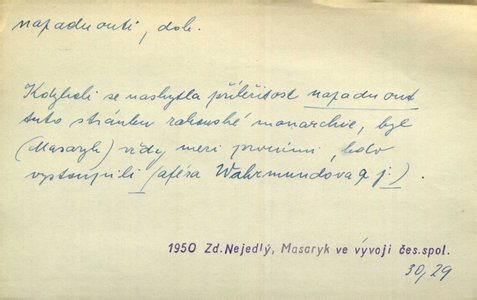 napadnouti, dok.
Kdykoli se naskytla příležitost napadnout
tuto stránku rakouské monarchie, byl
(Masaryk) vždy mezi prvními, kdo
vystoupili (aféra Wahrmundova a j.).
1950 Zd.Nejedlý, Masaryk ve vývoji čes.spol.
30,29